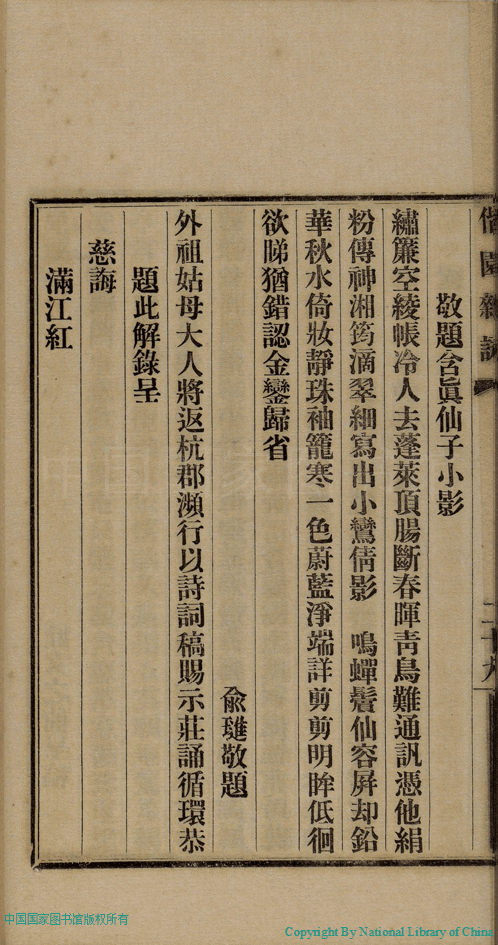 偕園雜詠　二十九
敬題含眞仙子小影
繡簾空綾帳冷人去蓬萊頂腸斷春暉靑鳥難通訊憑他絹
粉傳神湘筠滴翠細寫出小鸞倩影　鳴蟬鬢仙容屏却鉛
華秋水倚妝靜珠袖籠寒一色蔚藍淨端詳剪剪明眸低徊
欲睇猶錯認金鑾歸省
兪璡敬題
外祖姑母大人將返杭郡瀕行以詩詞稿賜示莊誦循環恭
題此解錄呈
慈誨
滿江紅
中国国家图书馆版权所有
Copyright By National Library of China